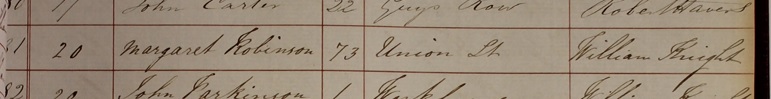 17 John Carter 22 Guys Row Robert Havens
21 20 Margaret Robinson 73 Union St William Knight
82 20 John Parkinson 1